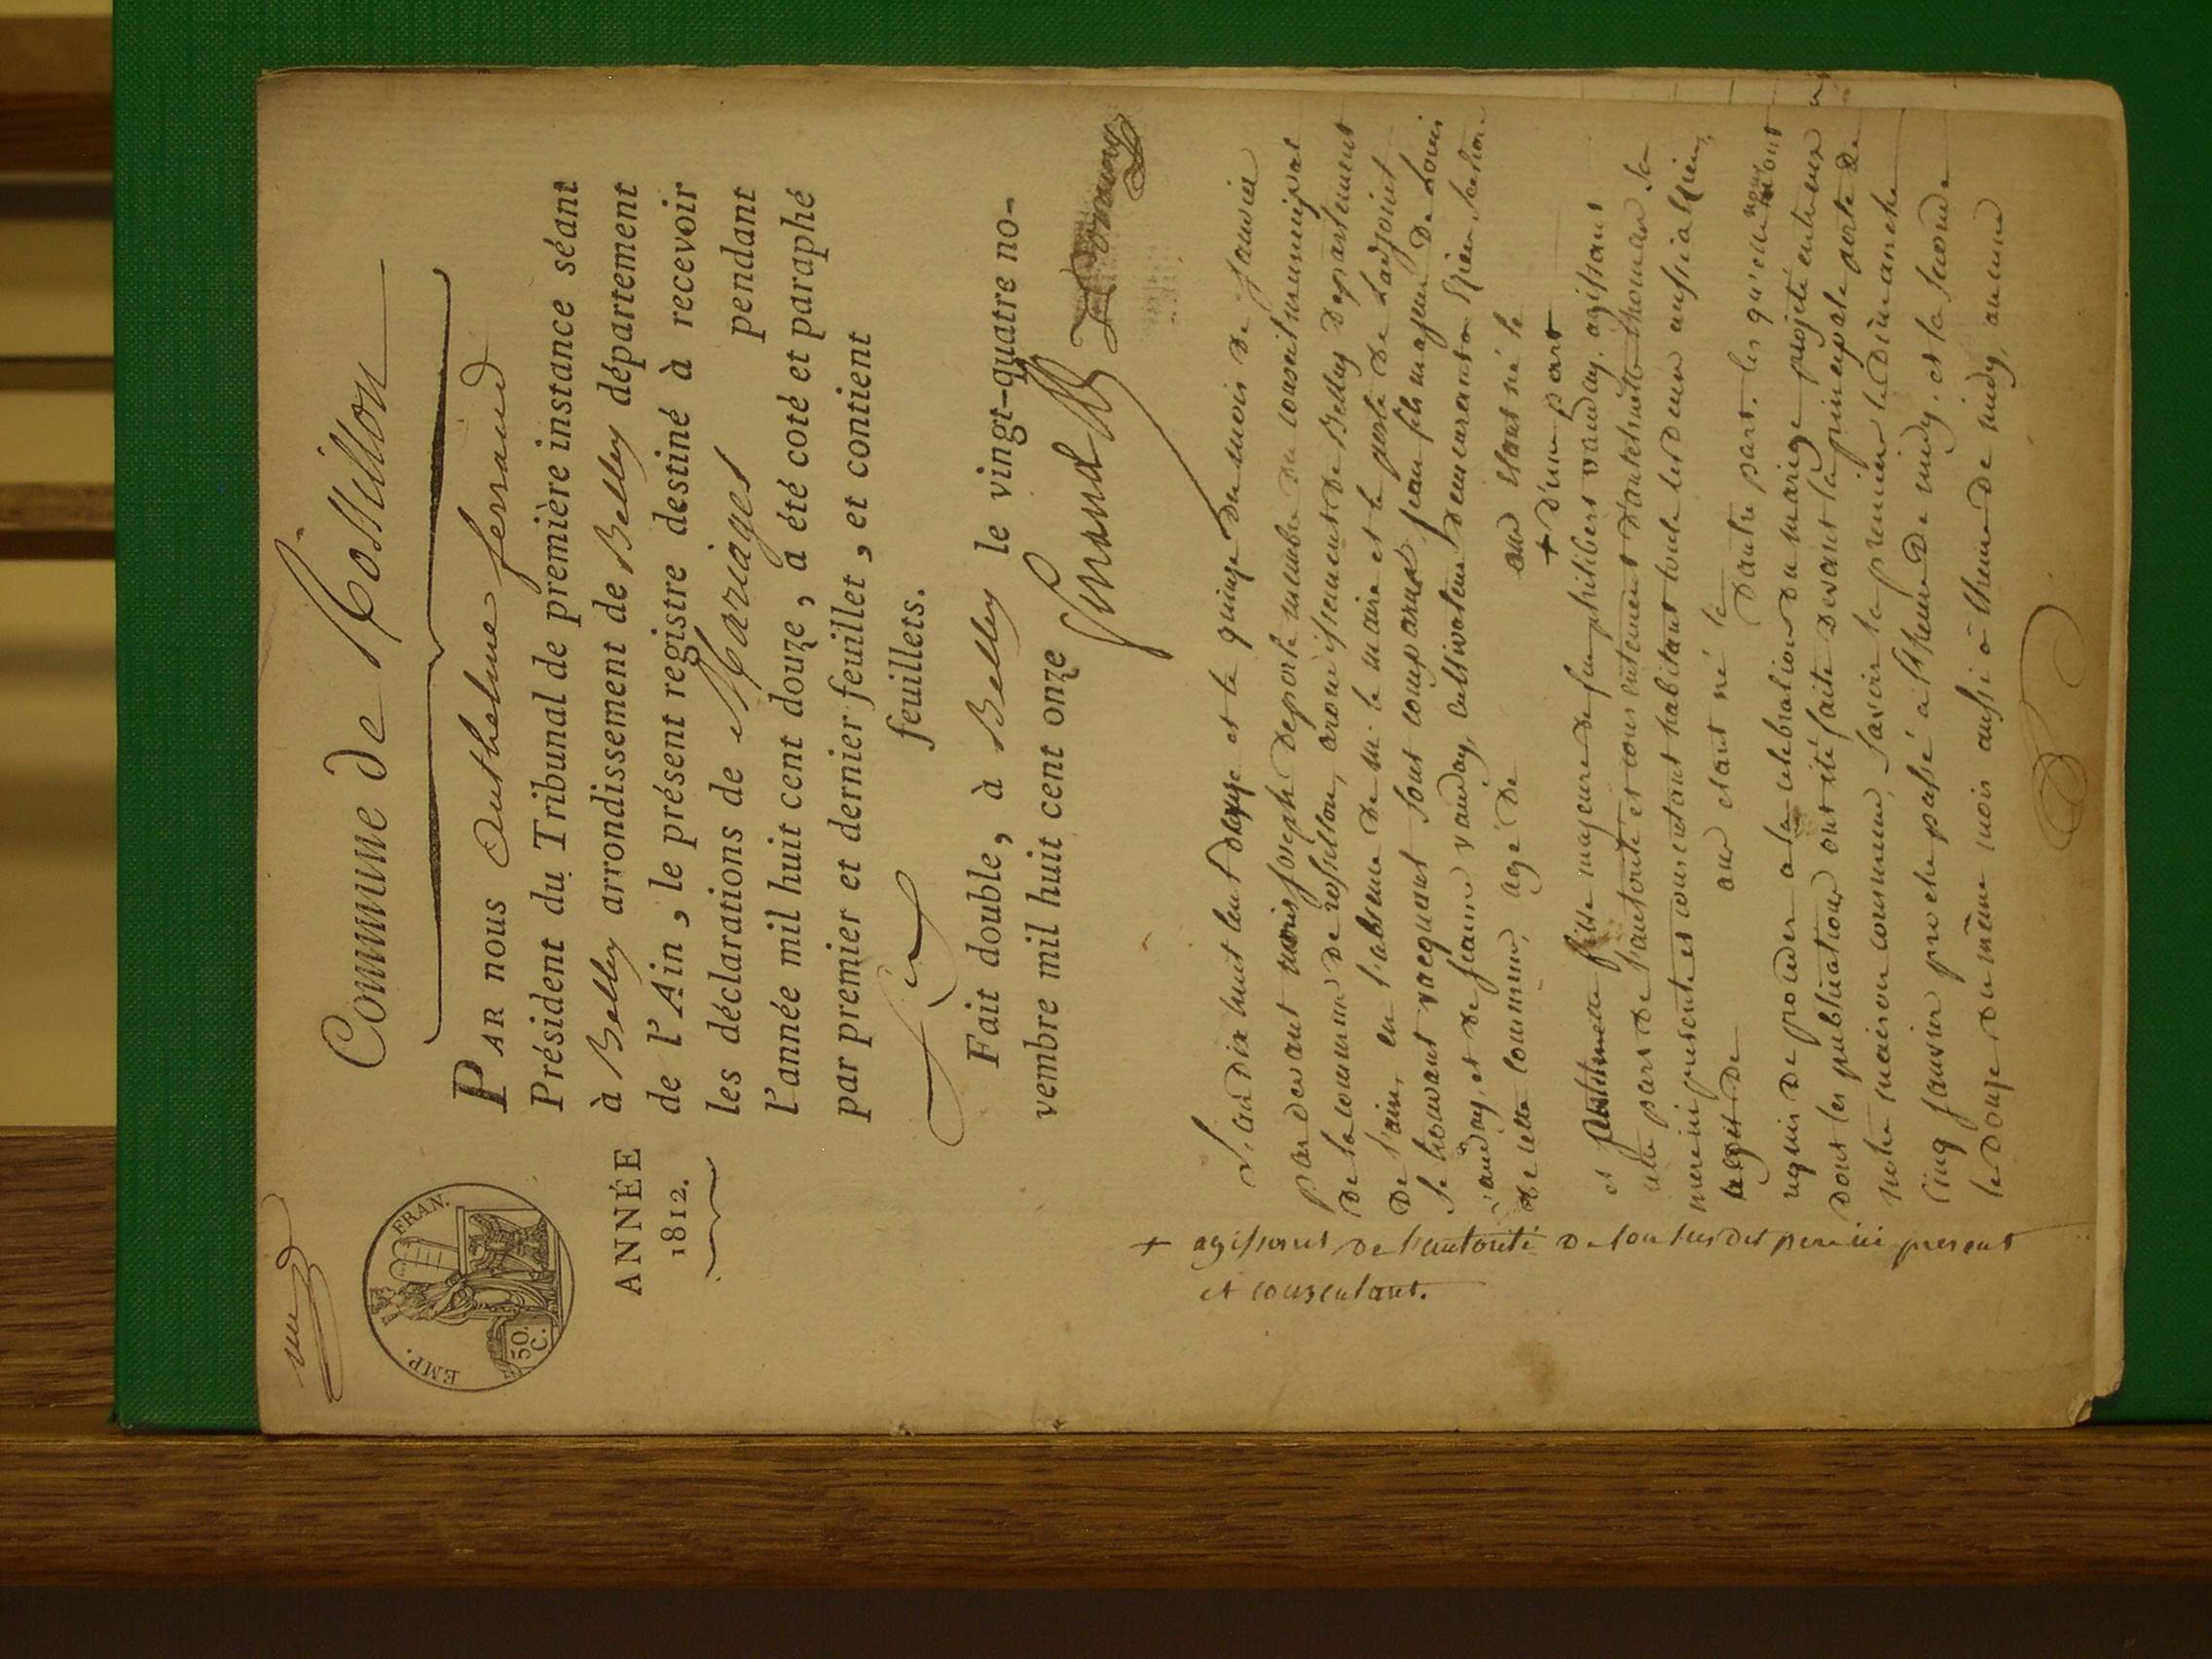 un
Commune de Rossillon
EMP. FRAN.
50. C.
ANNÉE
1812.
PAR nous Anthelme ferrand
Président du Tribunal de première instance séant
à Belley arrondissement de Belley département
de l'Ain, le présent registre destiné à recevoir
les déclarations de Mariages pendant
l'année mil huit cent douze, a été coté et paraphé
par premier et dernier feuillet, et contient
Six feuillets.
Fait double, à Belley le vingt-quatre no-
vembre mil huit cent onze
L'an dix huit cent douze et le quinze du mois de janvier
pardevant joseph deporte membre du conseil municipal
de la commune de rossillon, arondissement de Belley departement
de l'ain, en l'absence de m. le maire et le poste de l'adjoint
se trouvant vacquent sont comparus jean fils majeur de Louis
vauday, et de jeanne vauday, cultivateur demeurant a
de cette commune, agé de an etant né le
+ d'une part
et fille majeure de feu philibert vauday, agissant
de l'autorité et consentement d'antelmette thomas sa
mere ici presente et consentant habitant toutes deux aussi a
agée de ans etant né le d'autre part. les qu'els nous ont
requis de proceder a la celebration du mariage projeté entr'eux
dont les publications ont été faite devant la principale porte de
notre maison commune, savoir la premiere le dimanche
cinq janvier proche passé a l'heure de midy. et la seconde
le douze du même mois aussi a l'heure de midy, aucune
+ agissant de l'autorité de son susdit pere ici present
et consentant.